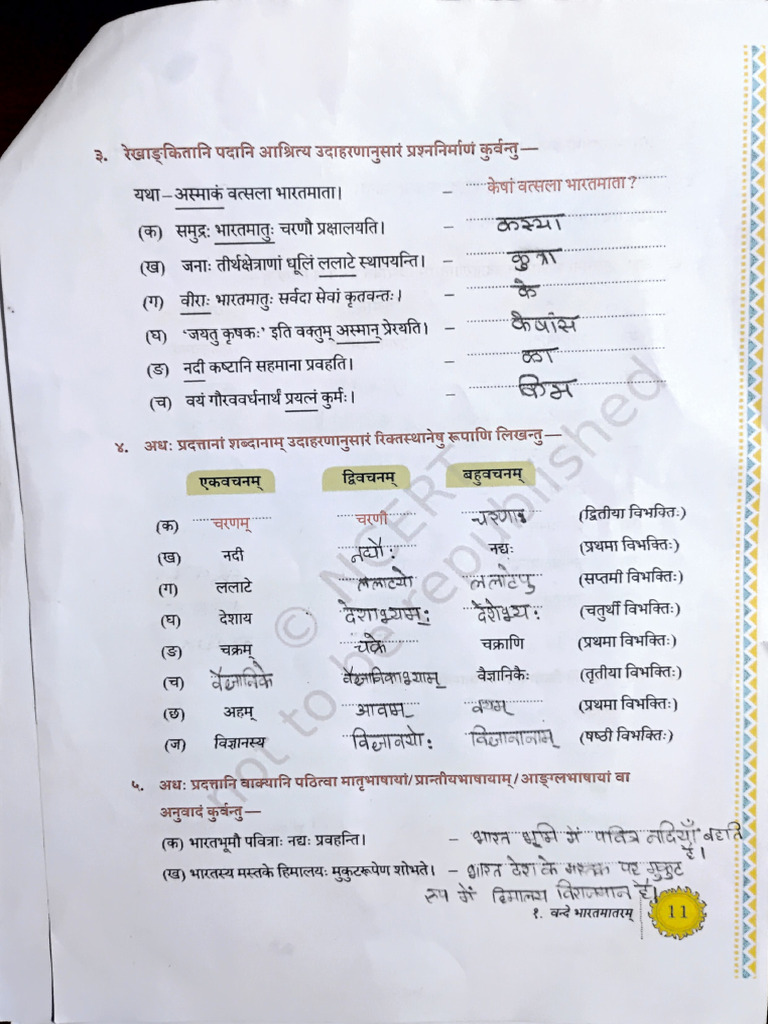 ३. रेखाङ्कितानि पदानि आश्रित्य उदाहरणानुसारं प्रश्ननिर्माणं कुर्वन्तु—
यथा – अस्माकं वत्सला भारतमाता। – केषां वत्सला भारतमाता ?
(क) समुद्रः भारतमातुः चरणौ प्रक्षालयति। – कस्या
(ख) जनाः तीर्थक्षेत्राणां धूलिं ललाटे स्थापयन्ति। – कुत्रा
(ग) वीराः भारतमातुः सर्वदा सेवां कृतवन्तः। – के
(घ) 'जयतु कृषकः' इति वक्तुम् अस्मान् प्रेरयति। – कैषांस
(ङ) नदी कष्टानि सहमाना प्रवहति। – का
(च) वयं गौरववर्धनार्थं प्रयत्नं कुर्मः। – किम
४. अधः प्रदत्तानां शब्दानाम् उदाहरणानुसारं रिक्तस्थानेषु रूपाणि लिखन्तु—
एकवचनम् द्विवचनम् बहुवचनम्
(क) चरणम् चरणौ (द्वितीया विभक्तिः)
(ख) नदी नद्यौः नद्यः (प्रथमा विभक्तिः)
(ग) ललाटे ललाटयो ललाटेषु (सप्तमी विभक्तिः)
(घ) देशाय देशाभ्यामः देशेभ्यः (चतुर्थी विभक्तिः)
(ङ) चक्रम् चक्रे चक्राणि (प्रथमा विभक्तिः)
(च) वैज्ञानिके वैज्ञानिकाभ्याम् वैज्ञानिकैः (तृतीया विभक्तिः)
(छ) अहम् आवाम् वयम् (प्रथमा विभक्तिः)
(ज) विज्ञानस्य विज्ञानयोः विज्ञानानां (षष्ठी विभक्तिः)
५. अधः प्रदत्तानि वाक्यानि पठित्वा मातृभाषायां/प्रान्तीयभाषायाम्/आङ्ग्लभाषायां वा
अनुवादं कुर्वन्तु—
(क) भारतभूमौ पवित्राः नद्यः प्रवहन्ति। – भारत भूमि में पवित्र नदियाँ बहति
है।
(ख) भारतस्य मस्तके हिमालयः मुकुटरूपेण शोभते। – भारत देश के मस्तक पर मुकुट
रूप में हिमालय विराजमान है।
१. वन्दे भारतमातरम् 11
© NCERT
not to be republished